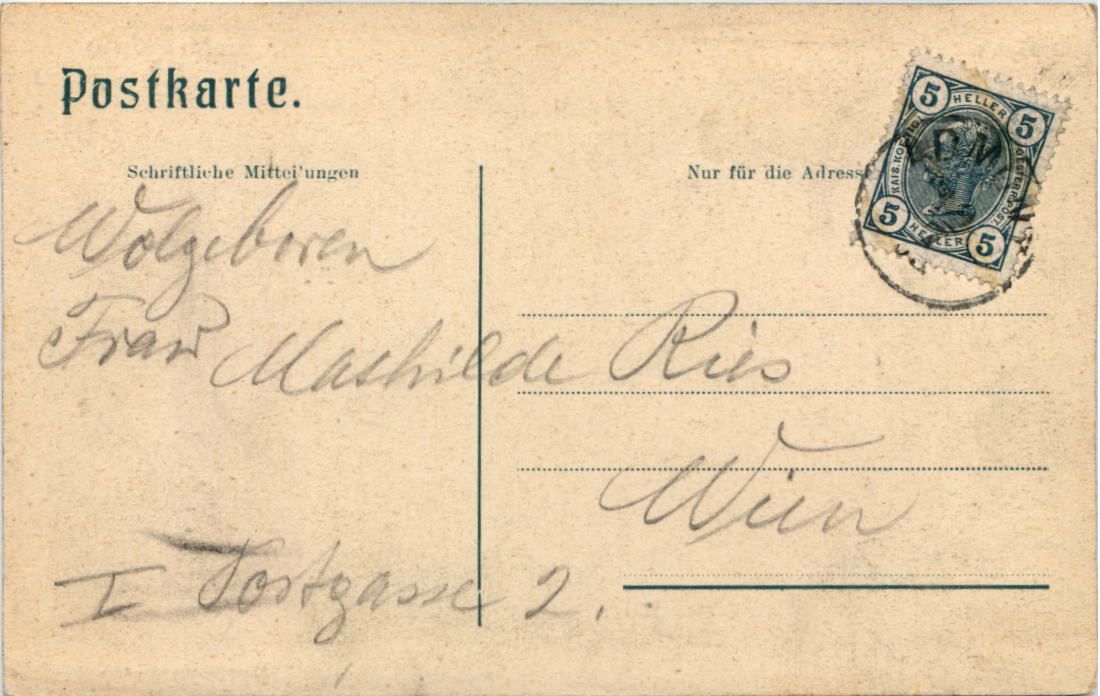 Postkarte.
Schriftliche Mitteilungen
Nur für die Adress
5 HELLER 5
KAIS. KOENIGL.
OESTERR. POST.
5 HELLER 5
Wolgeboren
Frau Mathilde Ries
Wien
I Postgasse 2.